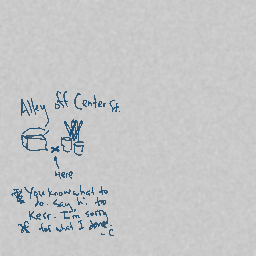 Alley off Center St.
Here
* You know what to
do. Say "hi" to
Kerr. I'm sorry
* for what I done!
- C